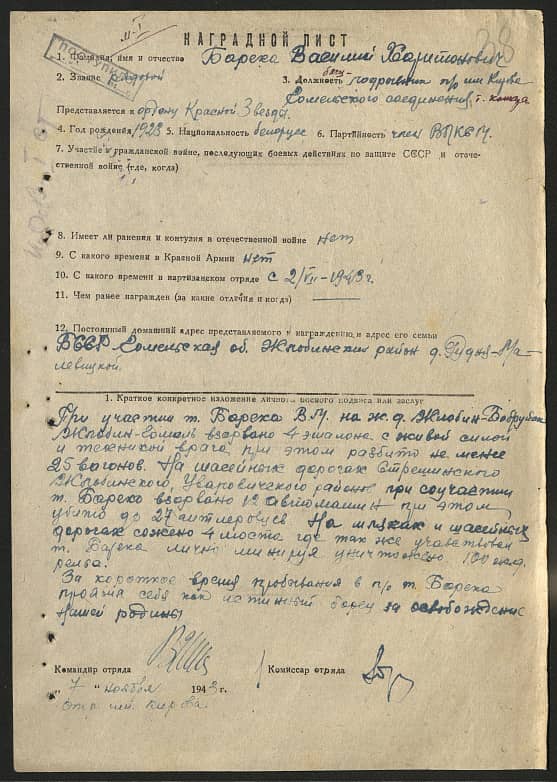 М-I
38
НАГРАДНОЙ ЛИСТ
ПОСТУПИЛ
1. Фамилия, имя и отчество Бареха Василий Харитонович
2. Звание рядовой 3. Должность подрывник п/о им Кирова
Гомельского соединения,
Представляется к ордену Красной Звезды
4. Год рождения 1923 5. Национальность белорус 6. Партийность член ВЛКСМ.
7. Участие в гражданской войне, последующих боевых действиях по защите СССР и отече-
ственной войне (где, когда)
8. Имеет ли ранения и контузия в отечественной войне нет
9. С какого времени в Красной Армии нет
10. С какого времени в партизанском отряде с 2/VII-1943г.
11. Чем ранее награжден (за какие отличия и когда) ——
12. Постоянный домашний адрес представляемого к награждению и адрес его семьи
БССР Гомельская об. Жлобинский район д. Рудня-Ма-
левицкой.
1. Краткое конкретное изложение личного боевого подвига или заслуг
При участии т. Бареха В.М. на ж.д. Жлобин-Бобруйск
Жлобин-Гомель взорвано 4 эшалона с живой силой
и техникой врага при этом разбито не менее
25 вагонов. На шасейных дорогах Стрешинского
Жлобинского, Уваровичского районе при соучастии
т. Барехо взорвано автомашин при этом
убито до 27 гитлеровцев На и шасейных
дорогах сожено 4 моста где так же участвовал
т. Бареха лично минируя уничтожено 100
рельс.
За короткое время пребывания в п/о т. Бареха
проявил себя как истинный борец за освобождение
нашей родины
Командир отряда Комиссар отряда
„ 7 " ноября 1943 г.
отр. им. Кирова.